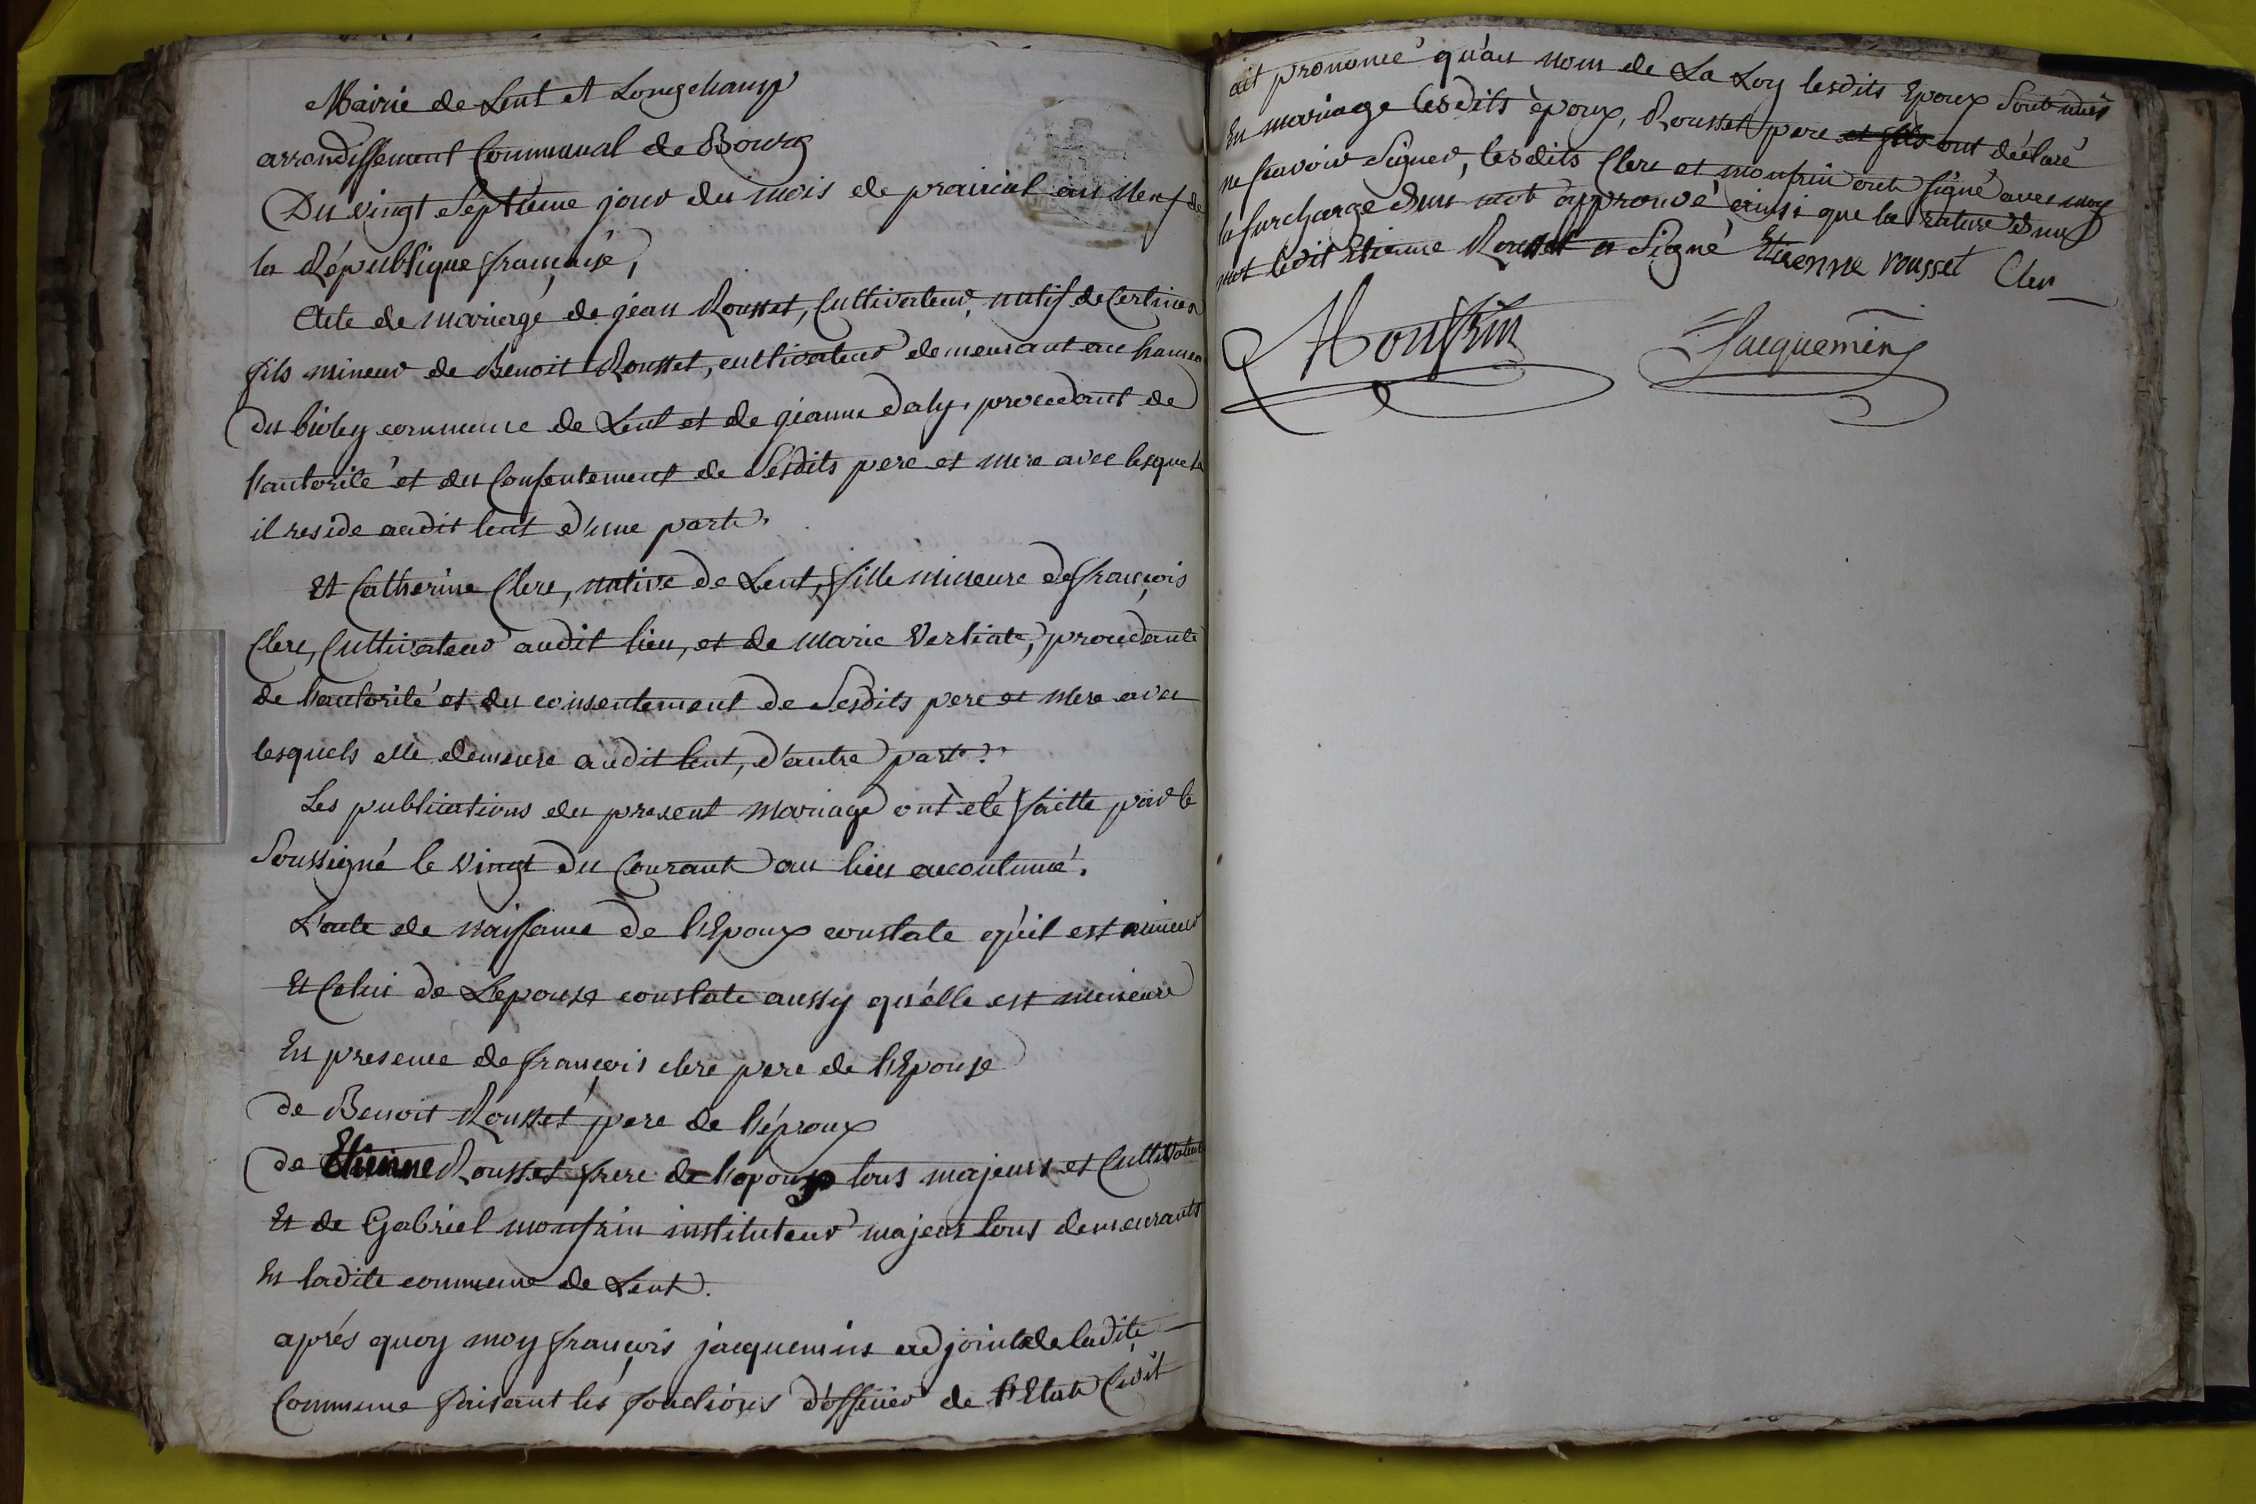 Mairie de Lent et Longchamp
arrondissement Communal de Bourg
Du vingt Septième jour du mois de prairial an neuf de
la République française,
Acte de mariage de jean Rousset, Cultivateur, natif de Certines
fils mineur de Benoit Rousset, cultivateur demeurant au hameau
du bioley commune de Lent et de jeanne daly, procedant de
l'autorité et du Consentement de Sesdits pere et mere avec lesquels
il reside audit lent d'une part.
Et Catherine Clerc, native de Lent, fille mineure de françois
Clerc, Cultivateur audit lieu, et de marie Verliate, procedante
de l'autorité et du consentement de Sesdits pere et mere avec
lesquels elle demeure audit lent, d'autre part.
Les publications du present mariage ont été faitte par le
Soussigné le vingt du Courant au lieu accoutumé.
L'acte de naissance de l'Epoux constate qu'il est mineur
Et Celui de L'epouse constate aussy qu'elle est mineure
En presence de françois clerc pere de l'Epouse
de Benoit Rousset pere de l'époux
de Etienne Rousset frere de l'epoux tous majeurs et Cultivateurs
Et de Gabriel monfrin instituteur majeur tous demeurants
En ladite commune de Lent.
aprés quoy moy françois jacquemin adjoint de ladite
Commune faisant les fonctions d'officier de l'Etat Civil
ait prononcé qu'au nom de La Loy lesdits Epoux Sont unis
En mariage lesdits époux, Rousset pere et fils ont déclaré
ne scavoir Signer, lesdits Clerc et monfrin ont signé avec moy
la surcharge d'un mot approuvé ainsi que la rature d'un
mot ledit Etienne Rousset a Signé Etienne rousset Clerc
Monfrin Jacquemin